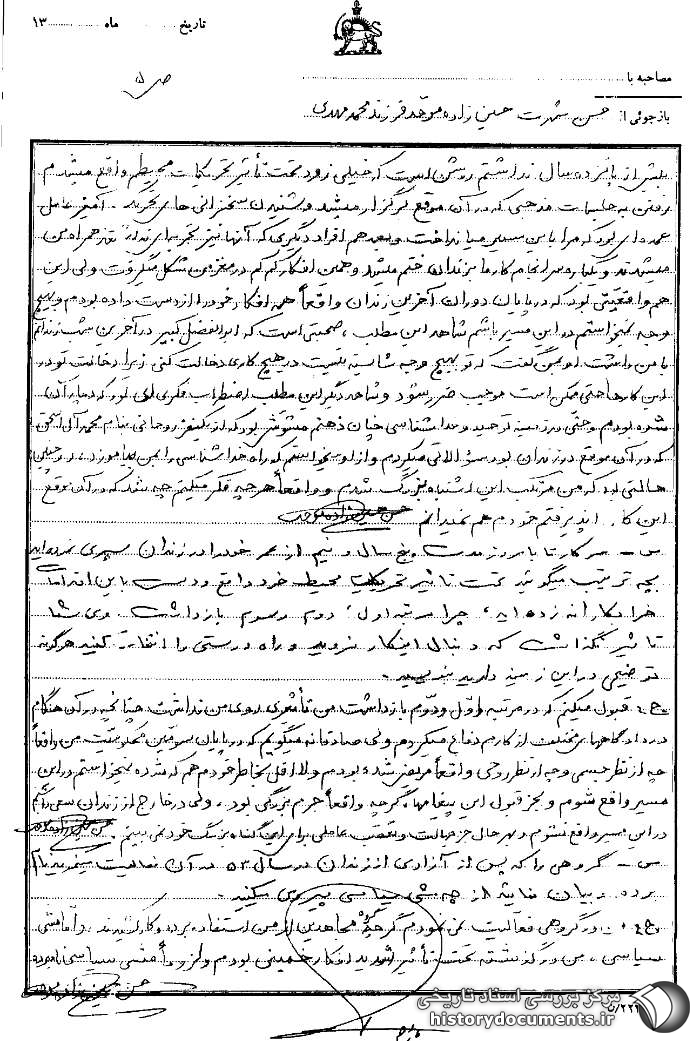 تاریخ ............ ماه ............ ۱۳
مصاحبه با
ص ۵
بازجوئی از: حسن شهرت حسین زاده موحد فرزند محمد مهدی
بیشتر از پانزده سال نداشتم روشن است که خیلی زود تحت تأثیر تحریکات محیطم واقع میشدم
رفتن به جلسات مذهبی که در آن موقع برگزار میشد و شنیدن سخنرانی های تحریک آمیز عامل
عمده ای بود که مرا باین مسیر میانداخت و بعد هم افراد دیگری که آنها نیز تجربه ای نداشتند همراه من
میشدند و یکباره سرانجام کار ما بزندان ختم میشد و همین افکار کم کم در مغزمن شکل میگرفت ولی این
هم واقعیتی بود که در پایان دوران آخرین زندان واقعاً همه افکار خود را از دست داده بودم و بهیچ
وجه نمیخواستم در این مسیر باشم شاهد این مطلب، صحبتی است که ابوالفضل کبیر در آخرین شب زندانم
با من داشت او بمن گفت که تو بهیچ وجه شایسته نیست در هیچ کاری دخالت کنی زیرا دخالت تو در
این کارها حتی ممکن است موجب ضرر بشود و شاهد دیگر این مطلب اضطراب فکری ای بود که دچار آن
شده بودم و حتی در زمینه توحید و خداشناسی چنان ذهنم مشوش بود که از یکنفر روحانی بنام محمد آل اسحق
که در آن موقع در زندان بود سؤالاتی میکردم و از او میخواستم که راه خداشناسی را بمن بیاموزد، در چنین
حالتی بود که من مرتکب این اشتباه بزرگ شدم و واقعاً هر چه فکر میکنم چه شد که در آن موقع
این کار را پذیرفتم خودم هم نمیدانم
س - سرکار تا بامروز مدت پنج سال و نیم از عمر خود را در زندان سپری نموده اید
بچه ترتیب میگوئید تحت تاثیر تحریکات محیط خود واقع و دست باین اقدامات
خرابکارانه زده اید، چرا مرتبه اول، دوم و سوم بازداشت روی شما
تاثیر نگذاشت که دنبال اینکار نروید و راه درستی را انتخاب کنید هرگونه
توضیحی در این زمینه دارید بنویسید.
ج: قبول میکنم که در مرتبه اول و دوم بازداشت من تأثیری روی من نداشت چنانچه در آن هنگام
در دادگاهها بر مختلف از کارم دفاع میکردم ولی صادقانه میگویم که در پایان سومین محکومیت من واقعاً
چه از نظر جسمی و چه از نظر روحی واقعاً مریض شده بودم و لااقل بخاطر خودم هم که شده نمیخواستم در این
مسیر واقع شوم و بجز قبول این پیغامها، گرچه واقعاً جرم بزرگی بود، ولی در خارج از زندان سعی داشتم
در این مسیر واقع نشوم و بهر حال جز جهالت و تعصب عاملی برای این گناه بزرگ خود نمی بینم.
س - گروهی را که پس از آزادی از زندان در سال ۵۳ در آن فعالیت میکردید نام
برده و بیان نمائید از چه مشی سیاسی پیروی میکنید.
ج: در گروهی فعالیت نمی نمودم گرچه گروه مجاهدین از من استفاده برده و کار کشیدند. و اما مشی
سیاسی، من در گذشته تحت تأثیر شدید افکار خمینی بودم و از او مشی سیاسی نامبرده
مرکز بررسی اسناد تاریخی
historydocuments.ir